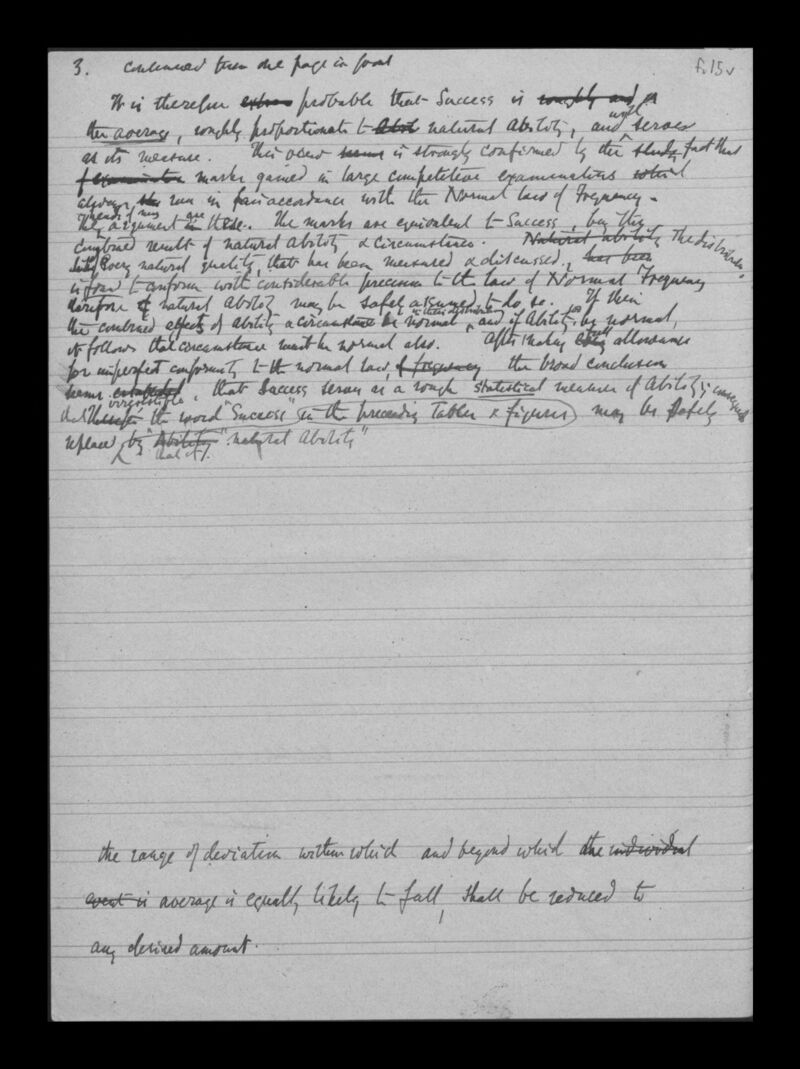 3. continued from the page in front
f.15v
It is therefore probable that Success is on
the average, roughly proportionate to natural Ability, and might serve
as its measure. This view is strongly confirmed by the fact that
marks gained in large competitive examinations
always run in fair accordance with the Normal law of Frequency.
My argument is these. The marks are equivalent to Success, being the
combined result of natural ability & circumstances. Natural ability The distribution
of every natural quality, that has been measured & discussed, has been
is found to conform with considerable precision to the law of Normal Frequency
therefore natural ability may be safely assumed to do so. If then
the combined effects of ability & circumstance be normal in their distribution, and if Ability be normal,
it follows that circumstance must be normal also. After making full allowance
for imperfect conformity to the normal law, of frequency the broad conclusion
seems irresistible, that Success serves as a rough statistical measure of Ability;
that Therefore the word "Success" (in the preceding tables & figures) may be safely
replaced by that of "Ability" "natural Ability"
the range of deviation within which and beyond which the individual
event is average is equally likely to fall, shall be reduced to
any desired amount.